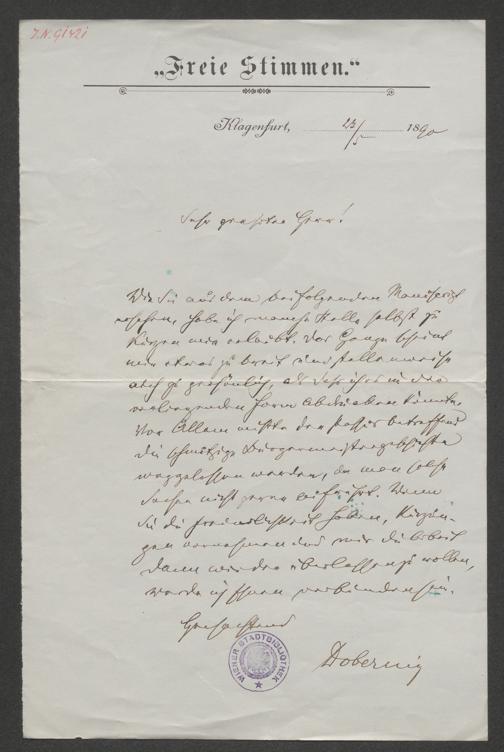 J.N. 91421
„Freie Stimmen.“
Klagenfurt, 23/5 1890
Sehr geehrter Herr!
Wie Sie aus dem beifolgenden Manuscript
ersehen, habe ich manche Stelle selbst zu
kürzen mir erlaubt. Das Ganze scheint
mir etwas zu breit und stellenweise
auch zu persönlich, als daß ich es in der
vorliegenden Form abdrucken könnte.
Vor Allem müßte der Passus betreffend
die schmutzige Bürgermeistergeschichte
weggelassen werden, da man solche
Sachen nicht gerne aufrührt. Wenn
Sie die Freundlichkeit haben, Kürzun-
gen vornehmen und mir die Arbeit
dann wieder überlassen zu wollen,
werde ich Ihnen verbunden sein.
Hochachtend
Dobernig
WIENER STADTBIBLIOTHEK